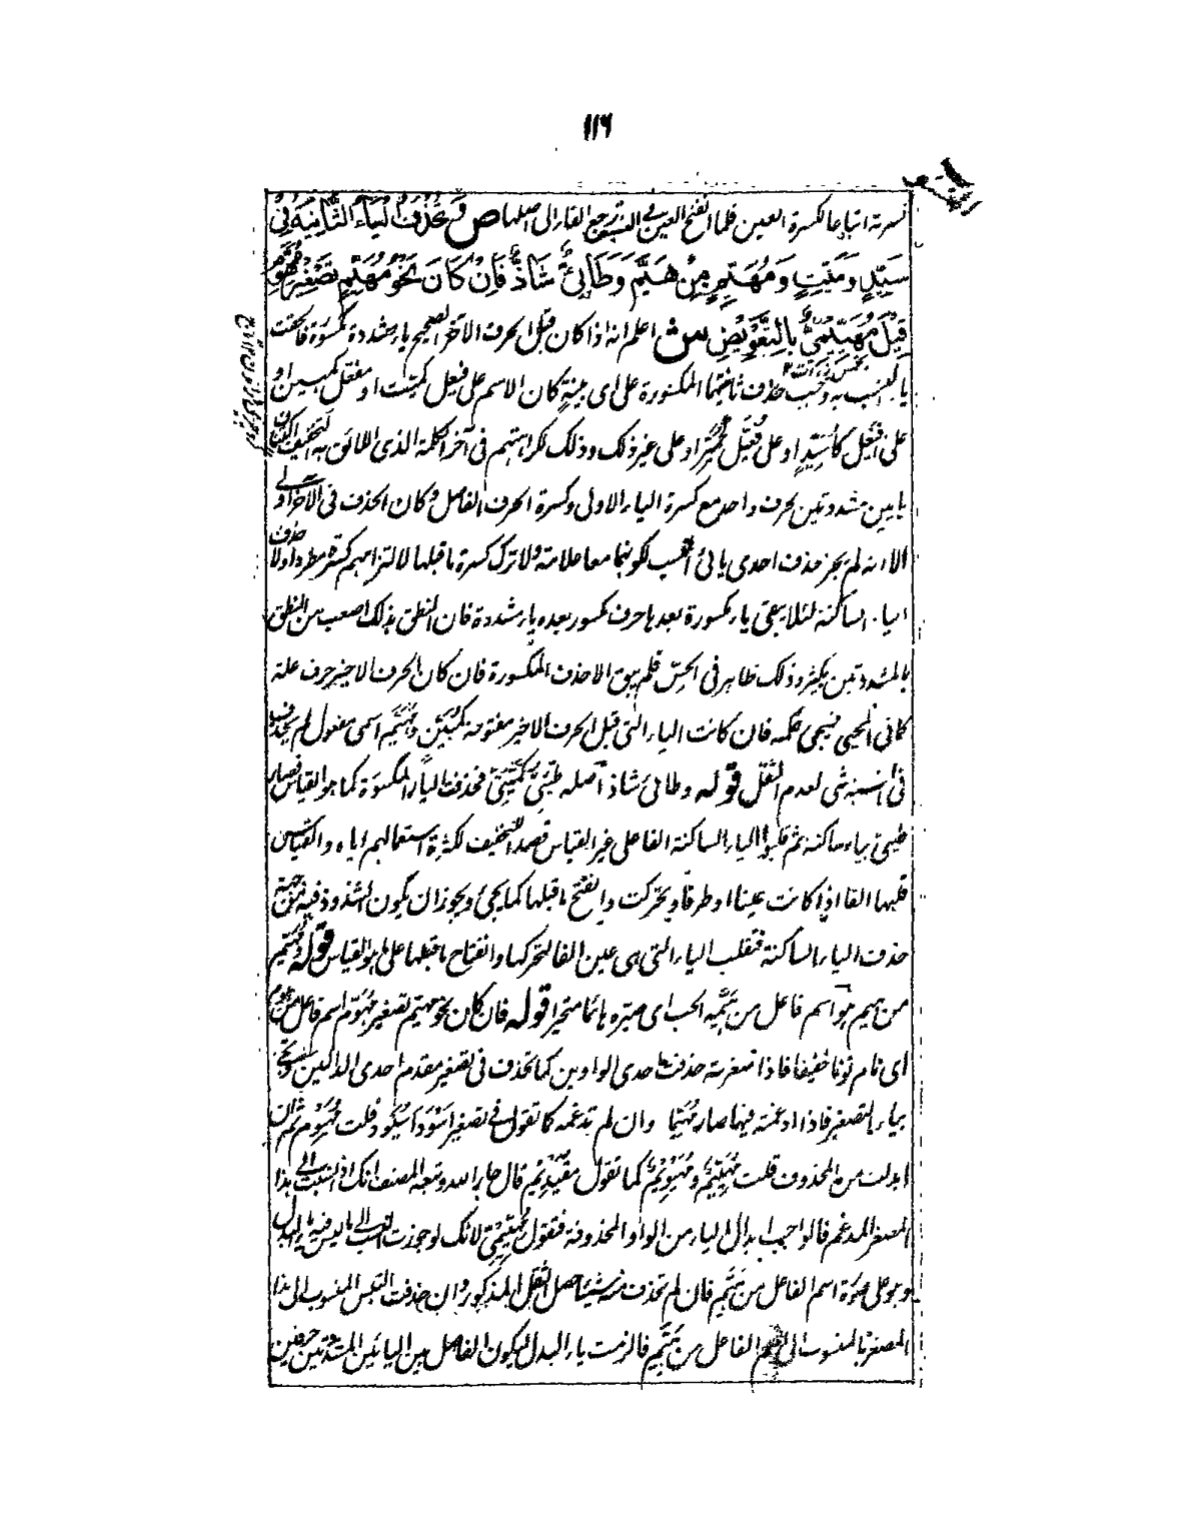 ١١٦
كسرته اتباعا لكسرة العين فلما انفتح العين في النسب رجع الفاء الى اصلها ص وَتُحْذَفُ الْيَاءُ الثَّانِيَةُ فِى
سَيِّدٍ وَمَيِّتٍ وَمُهَيِّمٍ مِنْ هَيَّمَ وَطَائِىٌّ شَاذٌّ فَاِنْ كَانَ نَحْوُ مُهَيِّمٍ تَصْغِيْرَ مُهَوِّمٍ
قِيْلَ مُهَيِّيْمِىٌّ بِالتَّعْوِيْضِ ش اعلم انه اذا كان قبل الحرف الآخر الصحيح ياء مشددة مكسورة فالحقت
ياء النسب به وجب حذف ثانيتهما المكسورة على اى بنية كان الاسم على فيعل كميت او مفعل كمبين او
على افيعل كأسيد او على فعيل كحمير او على غير ذلك وذلك لكراهتهم فى آخر الكلمة الذى اللائق به التخفيف اكتناف
يائين مشددتين بحرف واحد مع كسرة الياء الاولى وكسرة الحرف الفاصل وكان الحذف فى الآخر اولى
الا انه لم يجز حذف احدى يائى النسب لكونهما معا علامة ولا ترك كسرة ما قبلها لالتزامهم كسره مطردا ولا حذف
الياء الساكنة لئلا يبقى ياء مكسورة بعدها حرف مكسور بعده ياء مشددة فان النطق بذلك اصعب من النطق
بالمشددتين بكثير وذلك ظاهر فى الحس فلم يبق الا حذف المكسورة فان كان الحرف الاخير حرف علة
كما فى المحيى فسيجئ حكمه فان كانت الياء التى قبل الحرف الاخير مفتوحة كمبيّن ومهيَّم اسمى مفعول لم يحذف
فى النسبة شئ لعدم الثقل قوله وطائى شاذ اصله طيّئىّ كميّتىّ فحذفت الياء المكسورة كما هو القياس فصار
طيئى بياء ساكنة ثم قلبوا الياء الساكنة الفا على غير القياس قصدا للتخفيف لكثرة استعمالهم اياه والقياس
قلبها الفا اذا كانت عينا او طرفا وتحركت وانفتح ما قبلها كما يجئ ويجوز ان يكون الشذوذ فيه من جهة
حذف الياء الساكنة فتقلب الياء التى هى عين الفا لتحركها وانفتاح ما قبلها على ما هو القياس قوله ومهيم
من هيم هو اسم فاعل من هيّمه الحب اى صيره هائما متحيرا قوله فان كان نحو مهيم تصغير مُهَوِّم اسم فاعل من هوم
اى نام نوما خفيفا فاذا صغرته حذفت احدى الواوين كما تحذف فى تصغير مقدم احدى الدالين وتجئ
بياء التصغير فاذا ادغمته فيها صار مهيّما وان لم تدغمه كما تقول فى تصغير اسود اسيود قلت مهيوم ثم ان
ابدلت من المحذوف قلت مهيّيم ومهيويم كما تقول مقيديم قال جار الله وتبعه المصنف انك اذا نسبت الى هذا
المصغر المدغم فالواجب ابدال الياء من الواو المحذوفة فتقول مهيّيمىّ لانك لو جوزت النسب الى ما ليس فيه ياء البدل
وهو على صورة اسم الفاعل من هيّم فان لم تحذف منه شيئا حصل الثقل المذكور وان حذفت التبس المنسوب الى هذا
المصغر بالمنسوب الى اسم الفاعل من هيّم فالزمت ياء البدل ليكون الفاصل بين اليائين المشددتين حرفين